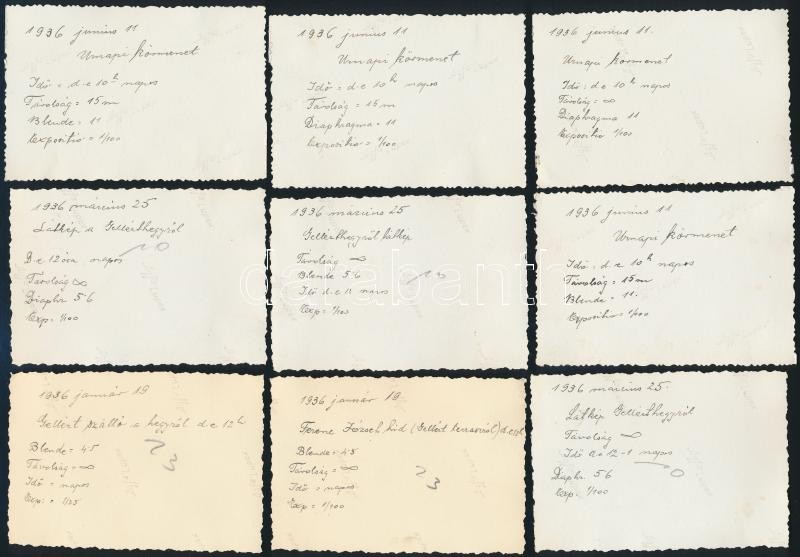 1936 június 11
Urnapi körmenet
Idő = d.e 10h napos
Távolság = 15 m
Blende = 11
Expositio = 1/100
1936 június 11
Urnapi körmenet
Idő : d.e 10h napos
Távolság = 15 m
Diaphragma = 11
expositio = 1/100
1936 június 11.
Urnapi körmenet
Idő : d.e 10h napos
Távolság = ∞
Diaphragma 11
Expositio 1/100
1936 március 25
Látkép a Gellérthegyről
D.e 12 óra napos
Távolság ∞
Diaphr 5·6
Exp = 1/100
1936 március 25
Gellérthegyről látkép
Távolság = ∞
Blende 5·6
Idő d.e 12 napos
Exp = 1/100
1936 június 11
Urnapi körmenet
Idő : d.e 10h napos
Távolság = 15 m
Blende = 11.
Expositio = 1/100
1936 január 19
Gellért szálló a hegyről d.e 12h
Blende = 4·5
Távolság = ∞
Idő = napos
Exp. = 1/25
23
1936 január 19.
Ferenc József híd (Gellért terrasról) d.e
Blende = 4·5
Távolság = ∞
Idő = napos
Exp = 1/100
23
1936 március 25.
Látkép Gellérthegyről
Távolság ∞
Idő d.e 12-1 napos
Diaphr. 5·6
Exp. 1/100
databanth